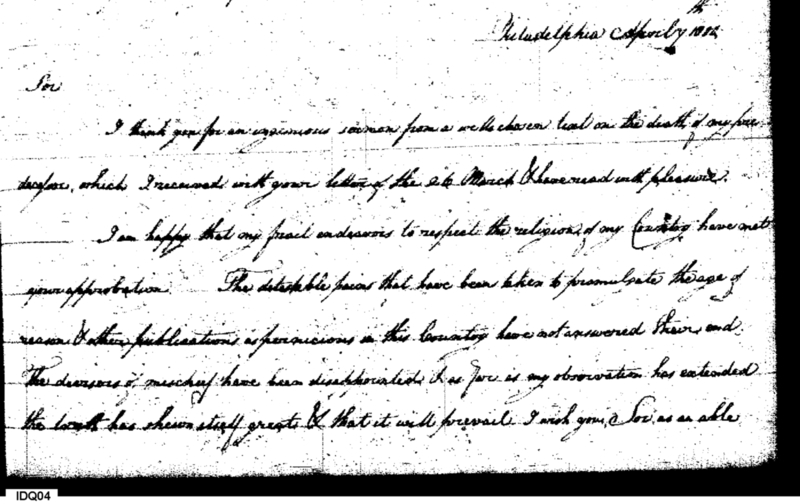 Philadelphia April 7th
Sir
I thank you for an ingenious sermon from a well chosen text on the death of my pre
decessor, which I received with your letter of the 26 March & have read with pleasure.
I am happy that my frail endeavors to respect the religion of my Country have met
your approbation The detestable pains that have been taken to promulgate the age of
reason & other publications as pernicious in this Country have not answered their end.
The devisors of mischief have been disappointed, & as far as my observation has extended
the truth has shewn itself great & that it will prevail I wish you, Sir, as an able
IDQ04